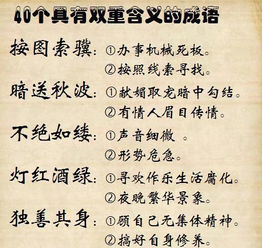 40个具有双重含义的成语
按图索骥：①办事机械死板。
②按照线索寻找。
暗送秋波：①献媚取宠暗中勾结。
②有情人眉目传情。
不绝如缕：①声音细微。
②形势危急。
灯红酒绿：①寻欢作乐生活腐化。
②夜晚繁华景象。
独善其身：①顾自己无集体精神。
②搞好自身修养。